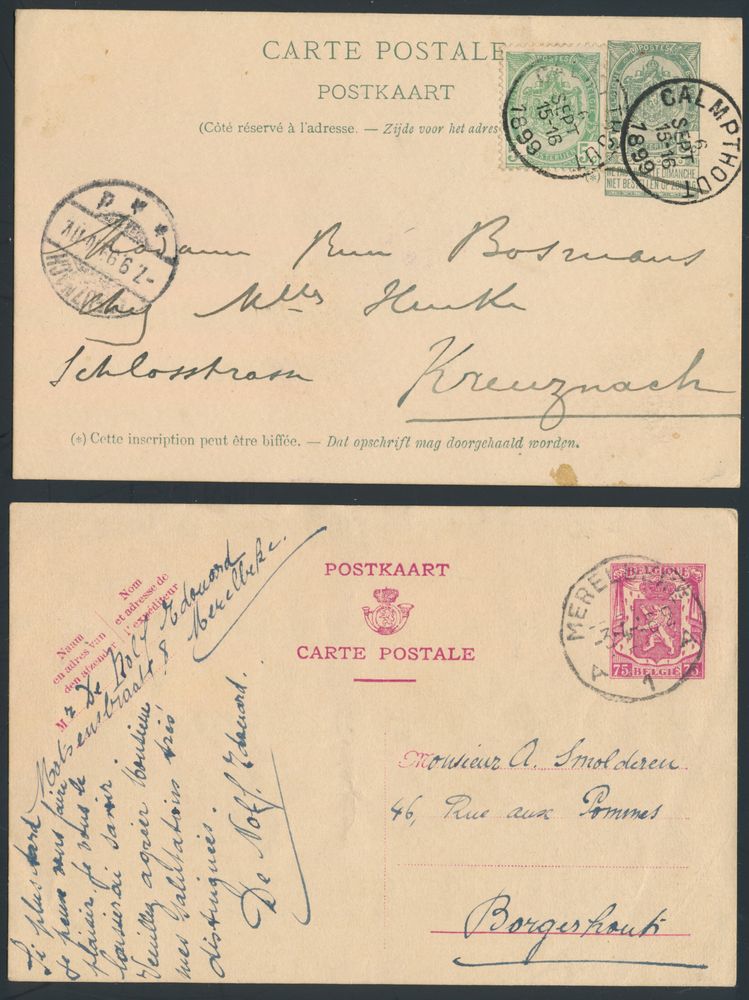 CARTE POSTALE
POSTKAART
(Côté réservé à l'adresse. — Zijde voor het adres
POSTES
5
CALMPTHOUT
6
SEPT
15-16
1899
CALMPTHOUT
6
SEPT
15-16
1899
NIET BESTELLEN OP ZON
(*)
Madame René Bosmans
chez Melles Henke
Schlosstrasse
Kreuznach
(*) Cette inscription peut être biffée. — Dat opschrift mag doorgehaald worden.
POSTKAART
CARTE POSTALE
BELGIQUE
75 BELGIË 75
MERELBEKE
A 1 A
Naam
en adres van
den afzender
Nom
et adresse de
l'expéditeur
M r De Nolf Edouard
8
Merelbeke.
Si plus tard
je peux vous faire
plaisir je vous le
laisserai savoir
Veuillez agréer Monsieur
mes Salutations très
distinguées.
De Nolf. Edouard.
Monsieur A. Smolderen
46, Rue aux Pommes
Borgerhout